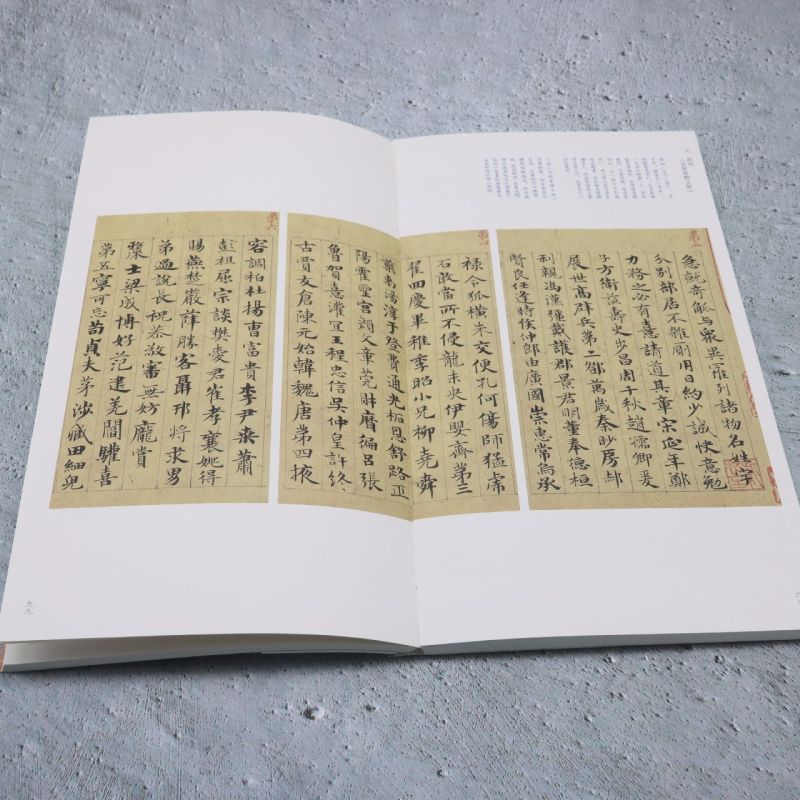 急就奇觚与眾異羅列諸物名姓字
分別部居不雜廁用日約少誠快意勉
力務之必有憙請道其章宋延年鄭
子方衛益壽史步昌周千秋趙孺卿爰
展世高辟兵第二鄧萬歲秦眇房郝
利親馮漢彊戴護郡景君明董奉德桓
賢良任逢時侯仲郎由廣國榮惠常烏承
第四
祿令狐橫朱交便孔何傷師猛虎
石敢當所不侵龍未央伊嬰齊第三
翟回慶畢稚季昭小兄柳堯舜
藥禹湯淳于登費通光柘恩舒路正
陽霍聖宮顏文章莞財曆偏呂張
魯賀憙灌宜王程忠信吳仲皇許終
古賈友倉陳元始韓魏唐第四掖
第六
容調柏杜楊曹富貴李尹桑蕭
彭祖屈宗談樊愛君崔孝襄姚得
賜燕楚嚴薛勝客聶邗將求男
弟過說長祝恭敬審無妨龐賞
士梁成博好范建羌閻驩喜
第五寧可忘苟貞夫茅涉臧田細兒
九九